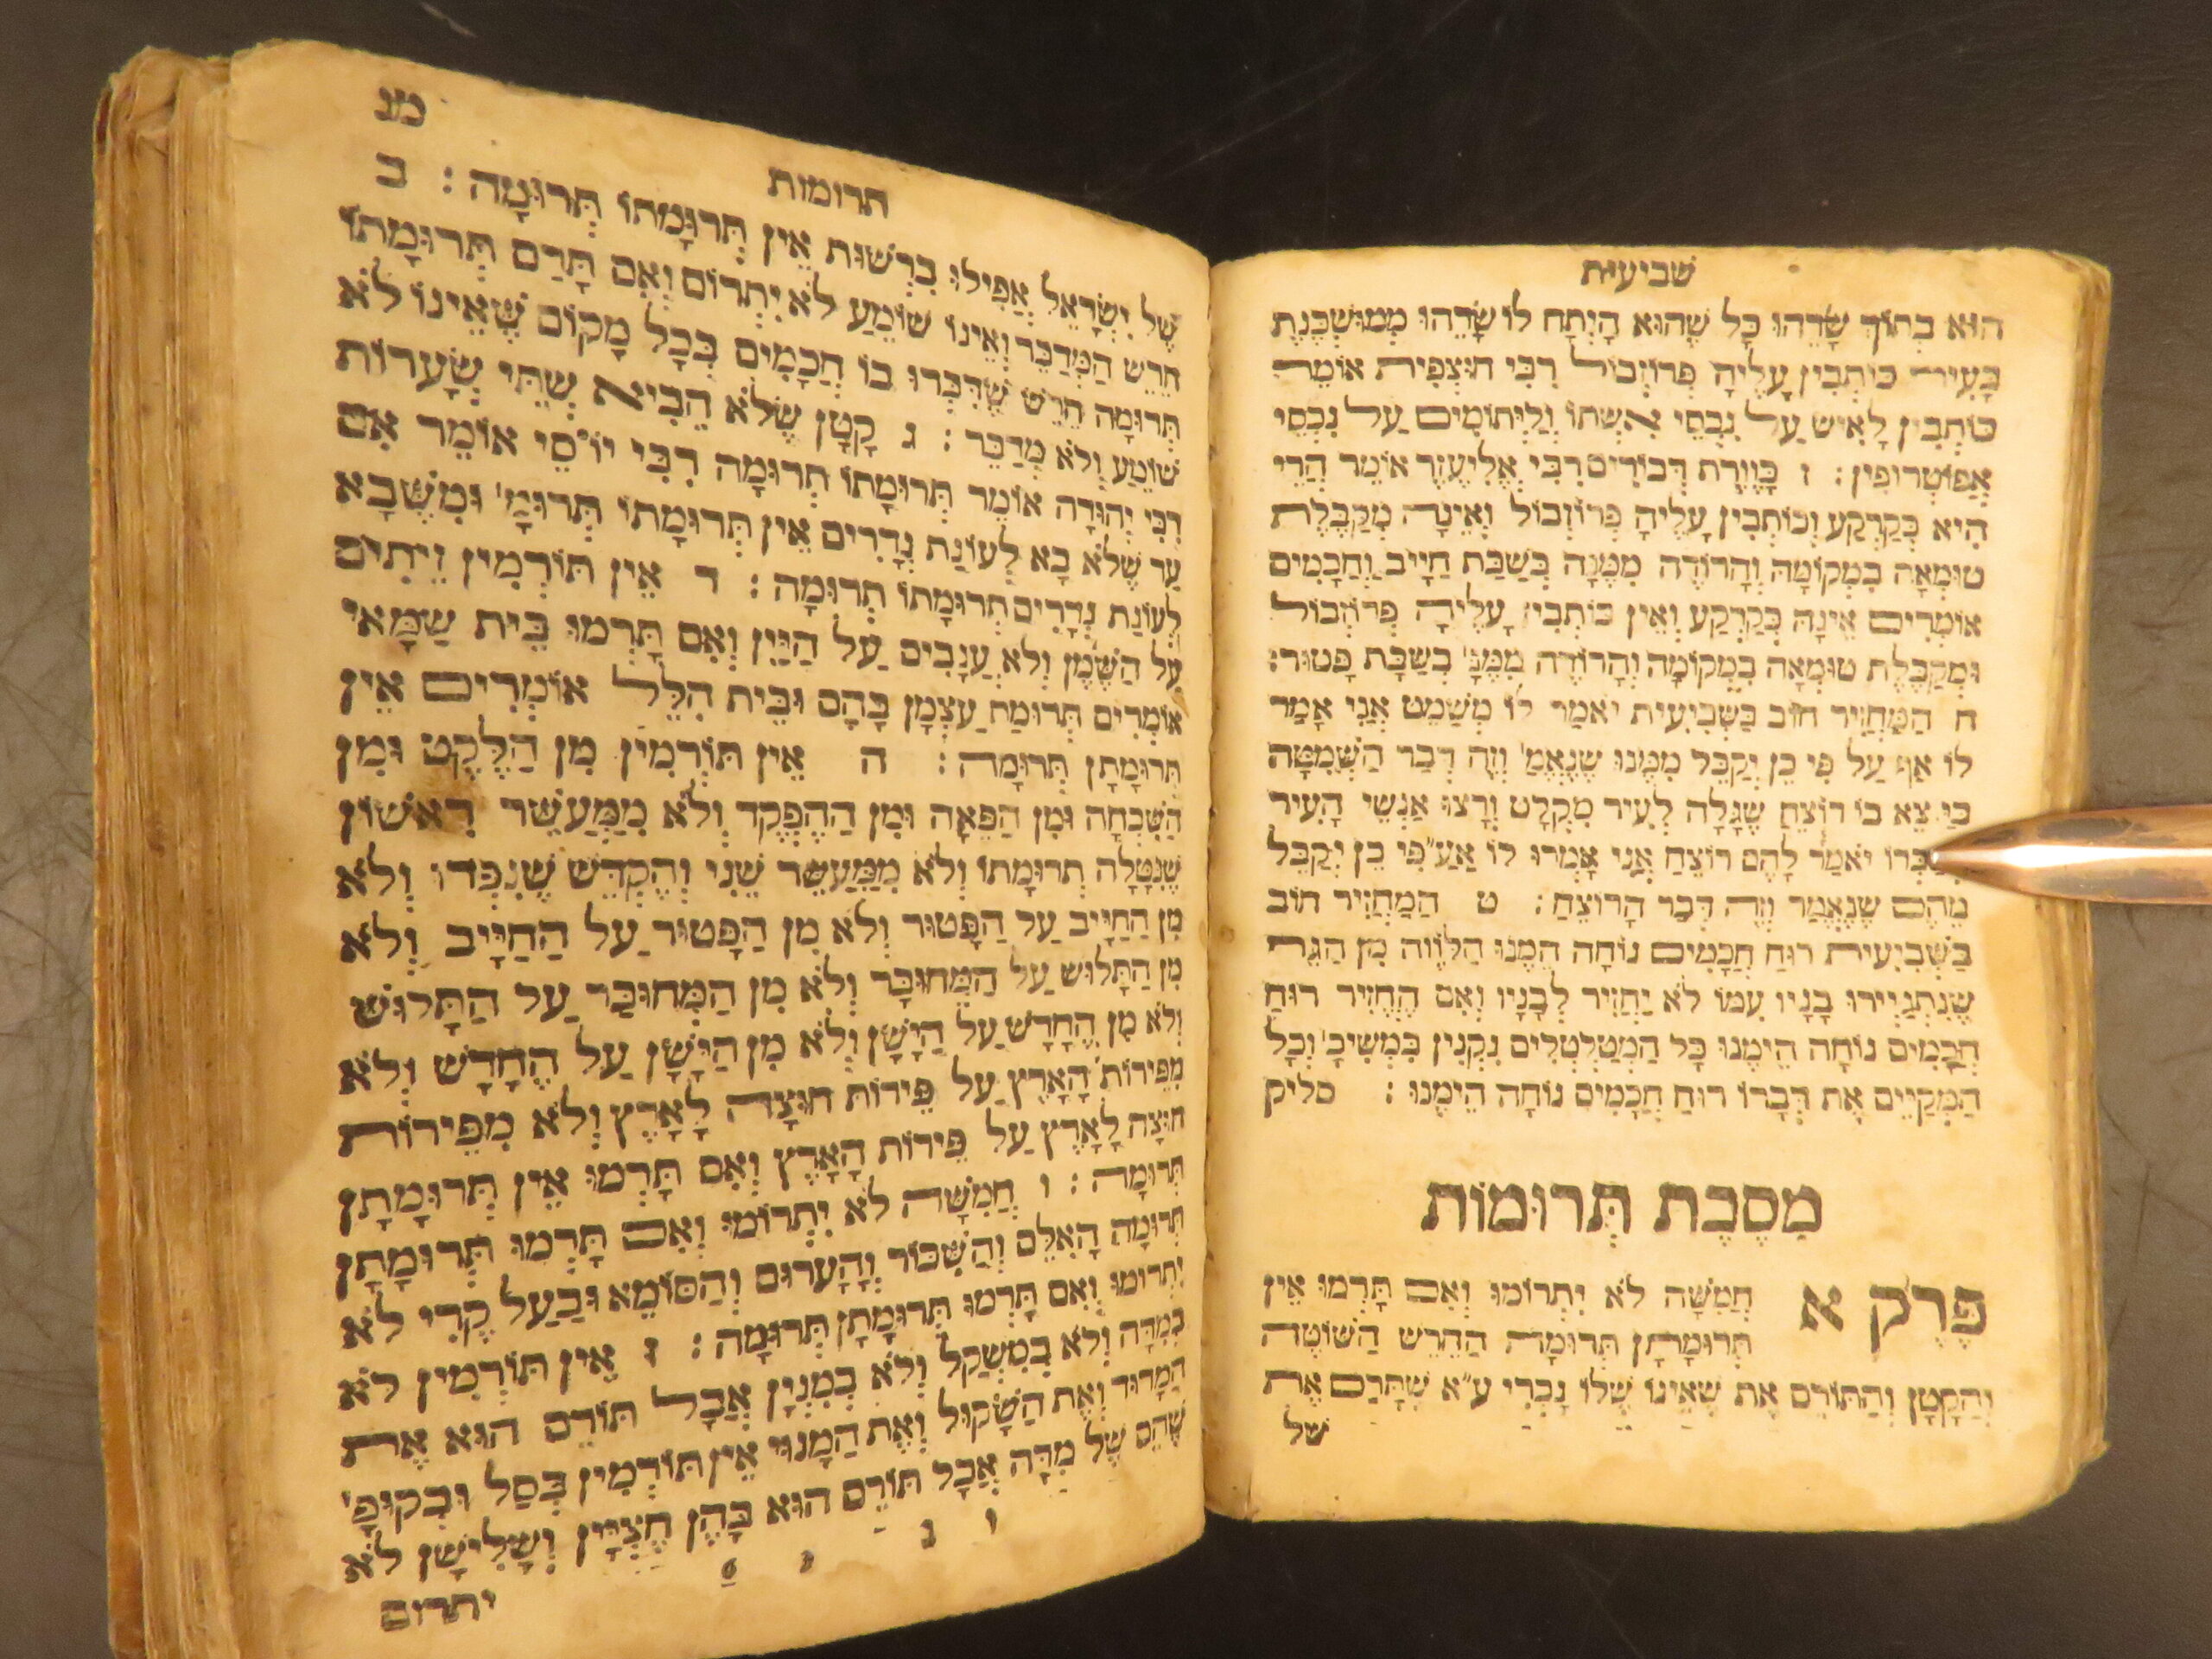 שביעית
הוּא בְתוֹךְ שָׂדֵהוּ כָּל שֶׁהוּא הָיְתָה לוֹ שָׂדֵהוּ מְמוּשְׁכֶּנֶת
בָּעִיר כּוֹתְבִין עָלֶיהָ פְּרוֹזְבּוֹל רִבִּי חוּצְפִּית אוֹמֵר
כּוֹתְבִין לָאִישׁ עַל נִכְסֵי אִשְׁתּוֹ וְלַיְתוֹמִים עַל נִכְסֵי
אֲפוֹטְרוֹפִּין : ז כַּוֶּורֶת דְּבוֹרִים רִבִּי אֱלִיעֶזֶר אוֹמֵר הֲרֵי
הִיא כְּקַרְקַע וְכוֹתְבִין עָלֶיהָ פְּרוֹזְבּוֹל וְאֵינָהּ מְקַבֶּלֶת
טוּמְאָה בִּמְקוֹמָהּ וְהָרוֹדֶה מִמֶּנָּה בְּשַׁבָּת חַיָּיב וַחֲכָמִים
אוֹמְרִים אֵינָהּ כְּקַרְקַע וְאֵין כּוֹתְבִין עָלֶיהָ פְּרוֹזְבּוֹל
וּמְקַבֶּלֶת טוּמְאָה בִּמְקוֹמָהּ וְהָרוֹדֶה מִמֶּנָּ' בְּשַׁבָּת פָּטוּר :
ח הַמַּחֲזִיר חוֹב בַּשְּׁבִיעִית יֹאמַר לוֹ מְשַׁמֵּט אֲנִי אָמַר
לוֹ אַף עַל פִּי כֵן יְקַבֵּל מִמֶּנּוּ שֶׁנֶּאֱמַ' וְזֶה דְּבַר הַשְּׁמִטָּה
כַּיּוֹצֵא בוֹ רוֹצֵחַ שֶׁגָּלָה לְעִיר מִקְלָט וְרָצוּ אַנְשֵׁי הָעִיר
לְכַבְּדוֹ יֹאמַר לָהֶם רוֹצֵחַ אֲנִי אָמְרוּ לוֹ אַעַ"פִּי כֵן יְקַבֵּל
מֵהֶם שֶׁנֶּאֱמַר וְזֶה דְּבַר הָרוֹצֵחַ : ט הַמַּחֲזִיר חוֹב
בַּשְּׁבִיעִית רוּחַ חֲכָמִים נוֹחָה הֵמֶנּוּ הַלֹּוֶוה מִן הַגֵּר
שֶׁנִּתְגַּיְּירוּ בָנָיו עִמּוֹ לֹא יַחֲזִיר לְבָנָיו וְאִם הֶחֱזִיר רוּחַ
חֲכָמִים נוֹחָה הֵימֶנּוּ כָּל הַמְטַלְטְלִים נִקְנִין בִּמְשִׁיכָ' וְכָל
הַמְקַיֵּים אֶת דְּבָרוֹ רוּחַ חֲכָמִים נוֹחָה הֵימֶנּוּ : סליק
מַסֶּכֶת תְּרוּמוֹת
פֶּרֶק א חֲמִשָּׁה לֹא יִתְרוֹמוּ וְאִם תָּרְמוּ אֵין
תְּרוּמָתָן תְּרוּמָה הַחֵרֵשׁ הַשּׁוֹטֶה
וְהַקָּטָן וְהַתּוֹרֵם אֶת שֶׁאֵינוֹ שֶׁלּוֹ נָכְרִי ע"א שֶׁתָּרַם אֶת
של
תרומות
שֶׁל יִשְׂרָאֵל אֲפִילוּ בִרְשׁוּת אֵין תְּרוּמָתוֹ תְּרוּמָה : ב
חֵרֵשׁ הַמְדַבֵּר וְאֵינוֹ שׁוֹמֵעַ לֹא יִתְרוֹם וְאִם תָּרַם תְּרוּמָתוֹ
תְּרוּמָה חֵרֵשׁ שֶׁדִּבְּרוּ בוֹ חֲכָמִים בְּכָל מָקוֹם שֶׁאֵינוֹ לֹא
שׁוֹמֵעַ וְלֹא מְדַבֵּר : ג קָטָן שֶׁלֹּא הֵבִיא שְׁתֵּי שְׂעָרוֹת
רִבִּי יְהוּדָה אוֹמֵר תְּרוּמָתוֹ תְּרוּמָה רִבִּי יוֹסֵי אוֹמֵר אִם
עַד שֶׁלֹּא בָא לְעוֹנַת נְדָרִים אֵין תְּרוּמָתוֹ תְּרוּמָ' וּמִשֶּׁבָּא
לְעוֹנַת נְדָרִים תְּרוּמָתוֹ תְּרוּמָה : ד אֵין תּוֹרְמִין זֵיתִים
עַל הַשֶּׁמֶן וְלֹא עֲנָבִים עַל הַיַּיִן וְאִם תָּרְמוּ בֵּית שַׁמָּאי
אוֹמְרִים תְּרוּמַת עַצְמָן בָּהֶם וּבֵית הִלֵּל אוֹמְרִים אֵין
תְּרוּמָתָן תְּרוּמָה : ה אֵין תּוֹרְמִין מִן הַלֶּקֶט וּמִן
הַשִּׁכְחָה וּמִן הַפֵּאָה וּמִן הַהֶפְקֵר וְלֹא מִמַּעֲשֵׂר רִאשׁוֹן
שֶׁנִּטְּלָה תְרוּמָתוֹ וְלֹא מִמַּעֲשֵׂר שֵׁנִי וְהֶקְדֵּשׁ שֶׁנִּפְדּוּ וְלֹא
מִן הַחַיָּיב עַל הַפָּטוּר וְלֹא מִן הַפָּטוּר עַל הַחַיָּיב וְלֹא
מִן הַתָּלוּשׁ עַל הַמְּחוּבָּר וְלֹא מִן הַמְּחוּבָּר עַל הַתָּלוּשׁ
וְלֹא מִן הֶחָדָשׁ עַל הַיָּשָׁן וְלֹא מִן הַיָּשָׁן עַל הֶחָדָשׁ וְלֹא
מִפֵּירוֹת הָאָרֶץ עַל פֵּירוֹת חוּצָה לָאָרֶץ וְלֹא מִפֵּירוֹת
חוּצָה לָאָרֶץ עַל פֵּירוֹת הָאָרֶץ וְאִם תָּרְמוּ אֵין תְּרוּמָתָן
תְּרוּמָה : ו חֲמִשָּׁה לֹא יִתְרוֹמוּ וְאִם תָּרְמוּ תְּרוּמָתָן
תְּרוּמָה הָאִלֵּם וְהַשִּׁכּוֹר וְהָעָרוּם וְהַסּוֹמֵא וּבַעַל קֶרִי לֹא
יִתְרוֹמוּ וְאִם תָּרְמוּ תְּרוּמָתָן תְּרוּמָה : ז אֵין תּוֹרְמִין לֹא
בְמִדָּה וְלֹא בְמִשְׁקָל וְלֹא בְמִנְיָן אֲבָל תּוֹרֵם הוּא אֶת
הַמָּדוּד וְאֶת הַשָּׁקוּל וְאֶת הַמָּנוּי אֵין תּוֹרְמִין בְּסַל וּבְקוּפָּ'
שֶׁהֵם שֶׁל מִדָּה אֲבָל תּוֹרֵם הוּא בָּהֶן חֶצְיָין וְשָׁלִישָׁן לֹא
יתרום